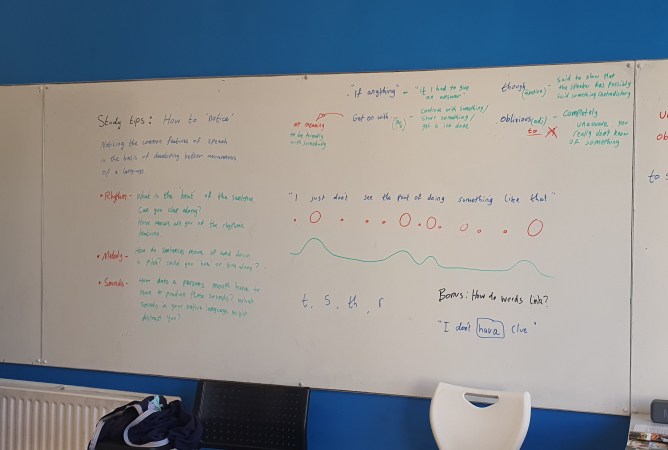 Study tips: How to 'notice'
Noticing the common features of speech
is the basis of developing better awareness
of a language
• Rhythm - What is the 'beat' of the sentence
Can you clap along?
How aware are you of the rhythmic
features
• Melody - How do sentences move up and down
in pitch? Could you 'hum' or sing along?
• Sounds - How does a persons mouth have to
move to produce these sounds? What
sounds in your native language might
distract you?
"If anything" - "If I had to give
an answer"
Get on with - continue with something/
start something/
get a job done
meaning
to be friendly
with somebody
though
said to show that
the speaker has possibly
said something contradictory
Oblivious (adj) - Completely
to
unaware, you
really don't know
of something
"I just don't see the point of doing something like that"
t, s, th, r
Bonus: How do words link?
"I don't hava clue"
to s